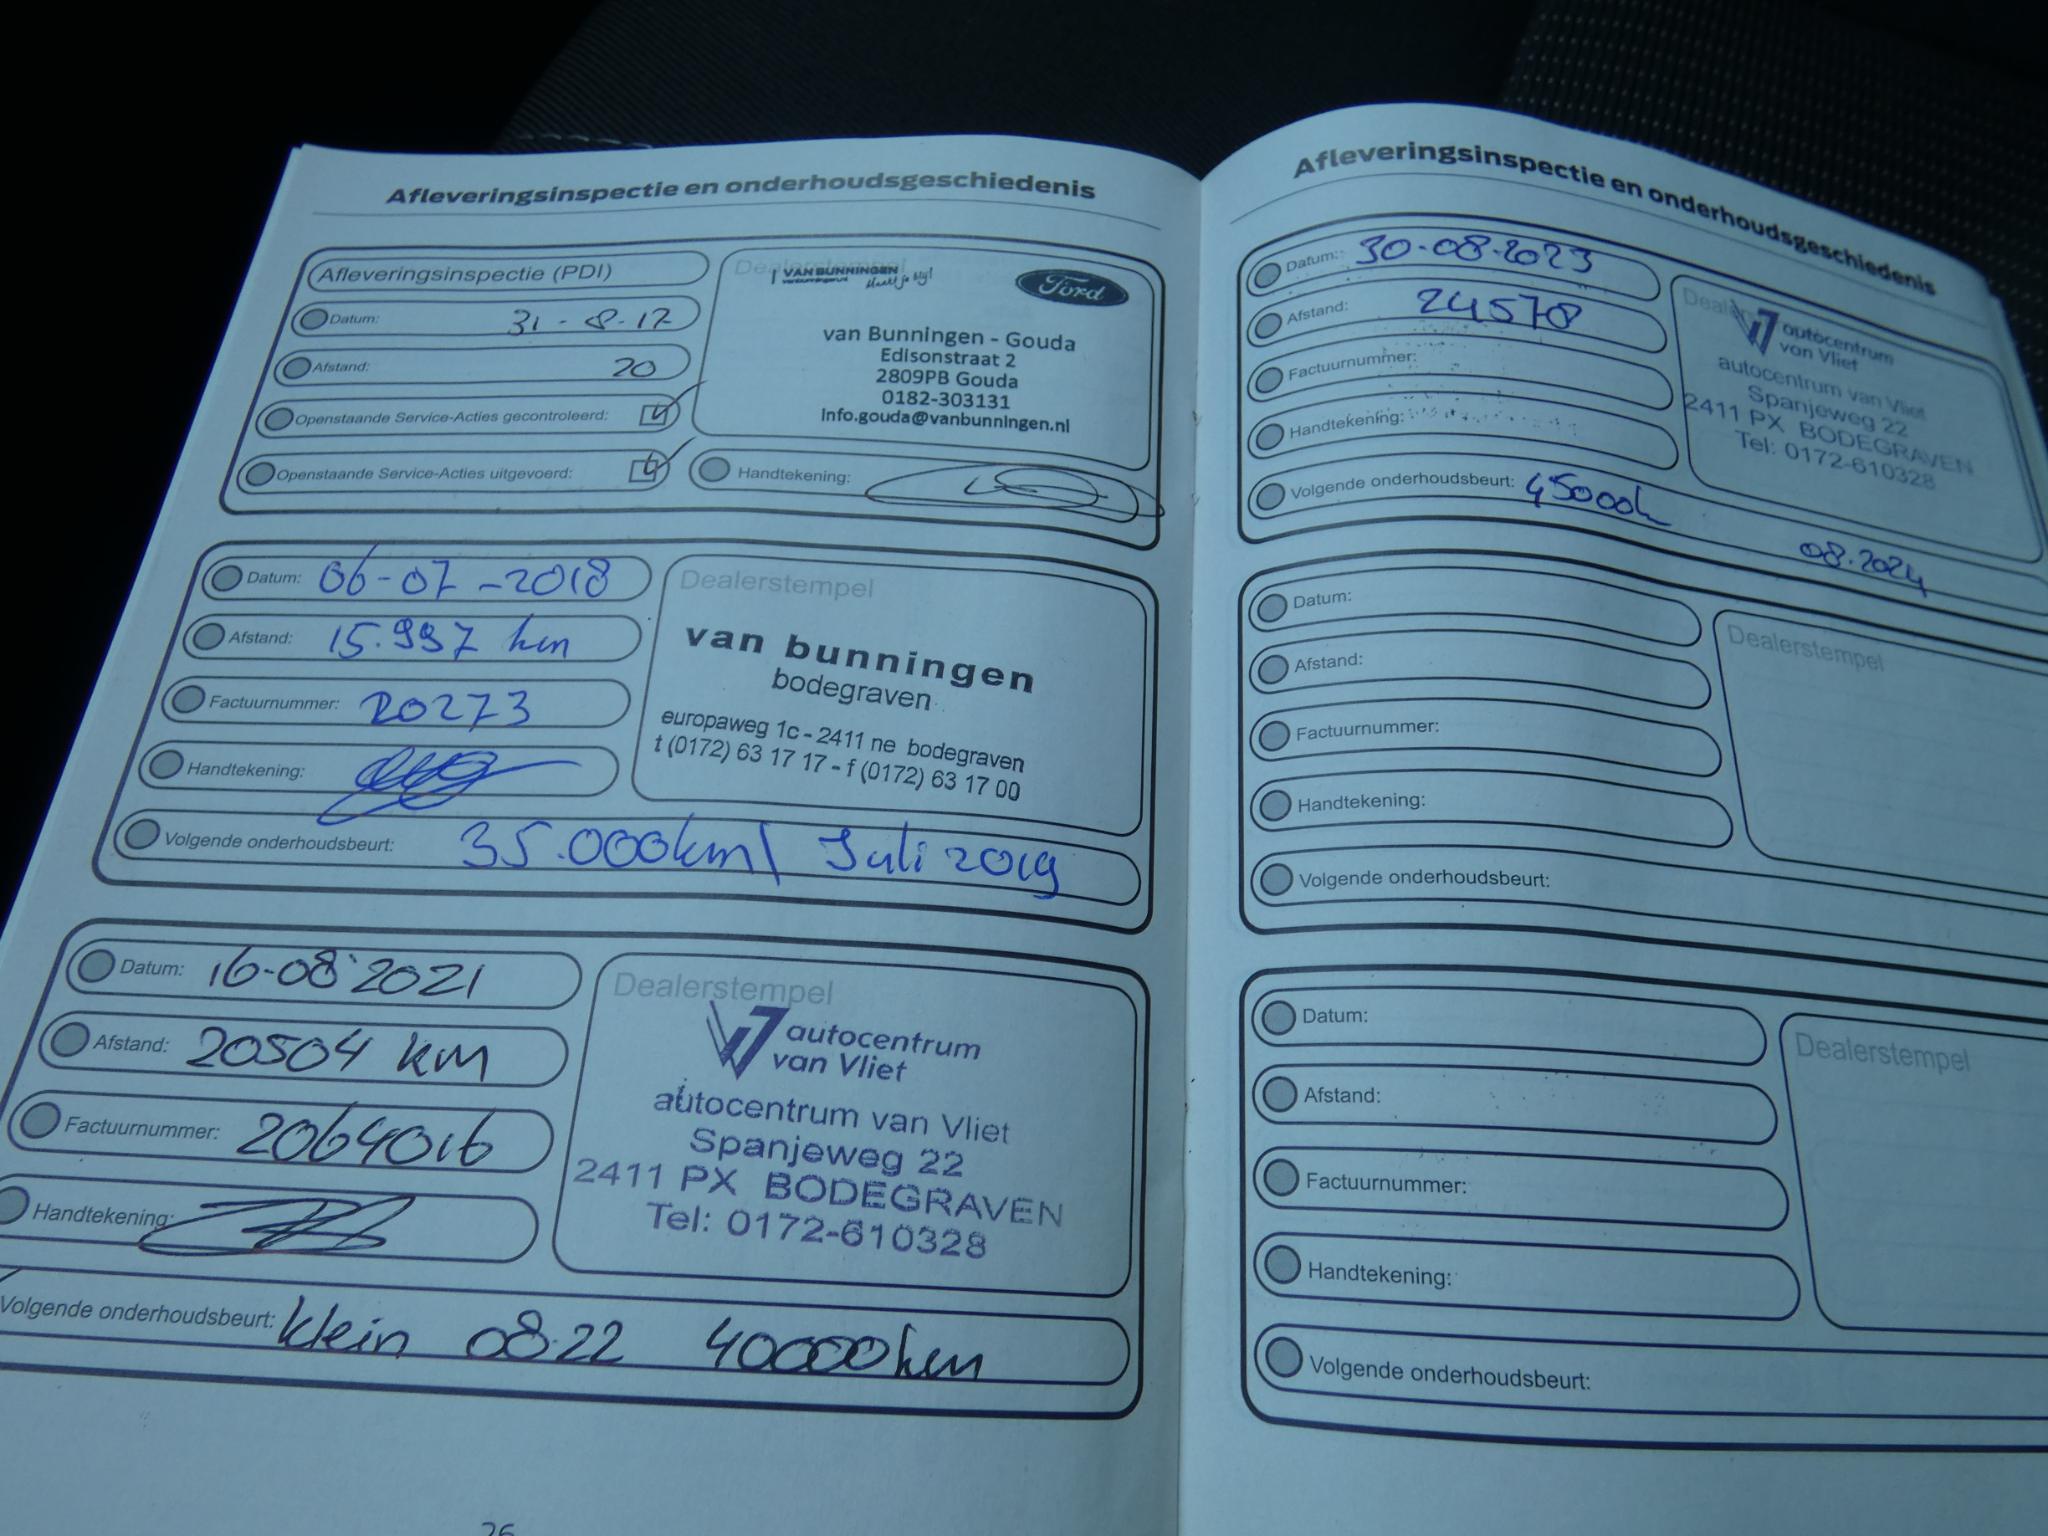 Afleveringsinspectie en onderhoudsgeschiedenis
Afleveringsinspectie (PDI)
Datum: 31-8-17
Afstand: 20
Openstaande Service-Acties gecontroleerd:
Openstaande Service-Acties uitgevoerd:
Dealerstempel
VAN BUNNINGEN
Ford
van Bunningen - Gouda
Edisonstraat 2
2809PB Gouda
0182-303131
Info.gouda@vanbunningen.nl
Handtekening:
Datum: 06-07-2018
Afstand: 15.997 km
Factuurnummer: 20273
Handtekening:
Volgende onderhoudsbeurt: 35.000km/ Juli 2019
Dealerstempel
van bunningen
bodegraven
europaweg 1c - 2411 ne bodegraven
t (0172) 63 17 17 - f (0172) 63 17 00
Datum: 16-08-2021
Afstand: 20504 km
Factuurnummer: 2064016
Handtekening:
Volgende onderhoudsbeurt: klein 08.22 40000km
Dealerstempel
autocentrum
van Vliet
autocentrum van Vliet
Spanjeweg 22
2411 PX BODEGRAVEN
Tel: 0172-610328
Afleveringsinspectie en onderhoudsgeschiedenis
Datum: 30-08-2023
Afstand: 24578
Factuurnummer:
Handtekening:
Volgende onderhoudsbeurt: 45000k
08.2024
autocentrum
van Vliet
autocentrum van Vliet
Spanjeweg 22
2411 PX BODEGRAVEN
Tel: 0172-610328
Datum:
Afstand:
Factuurnummer:
Handtekening:
Volgende onderhoudsbeurt:
Dealerstempel
Datum:
Afstand:
Factuurnummer:
Handtekening:
Volgende onderhoudsbeurt:
Dealerstempel